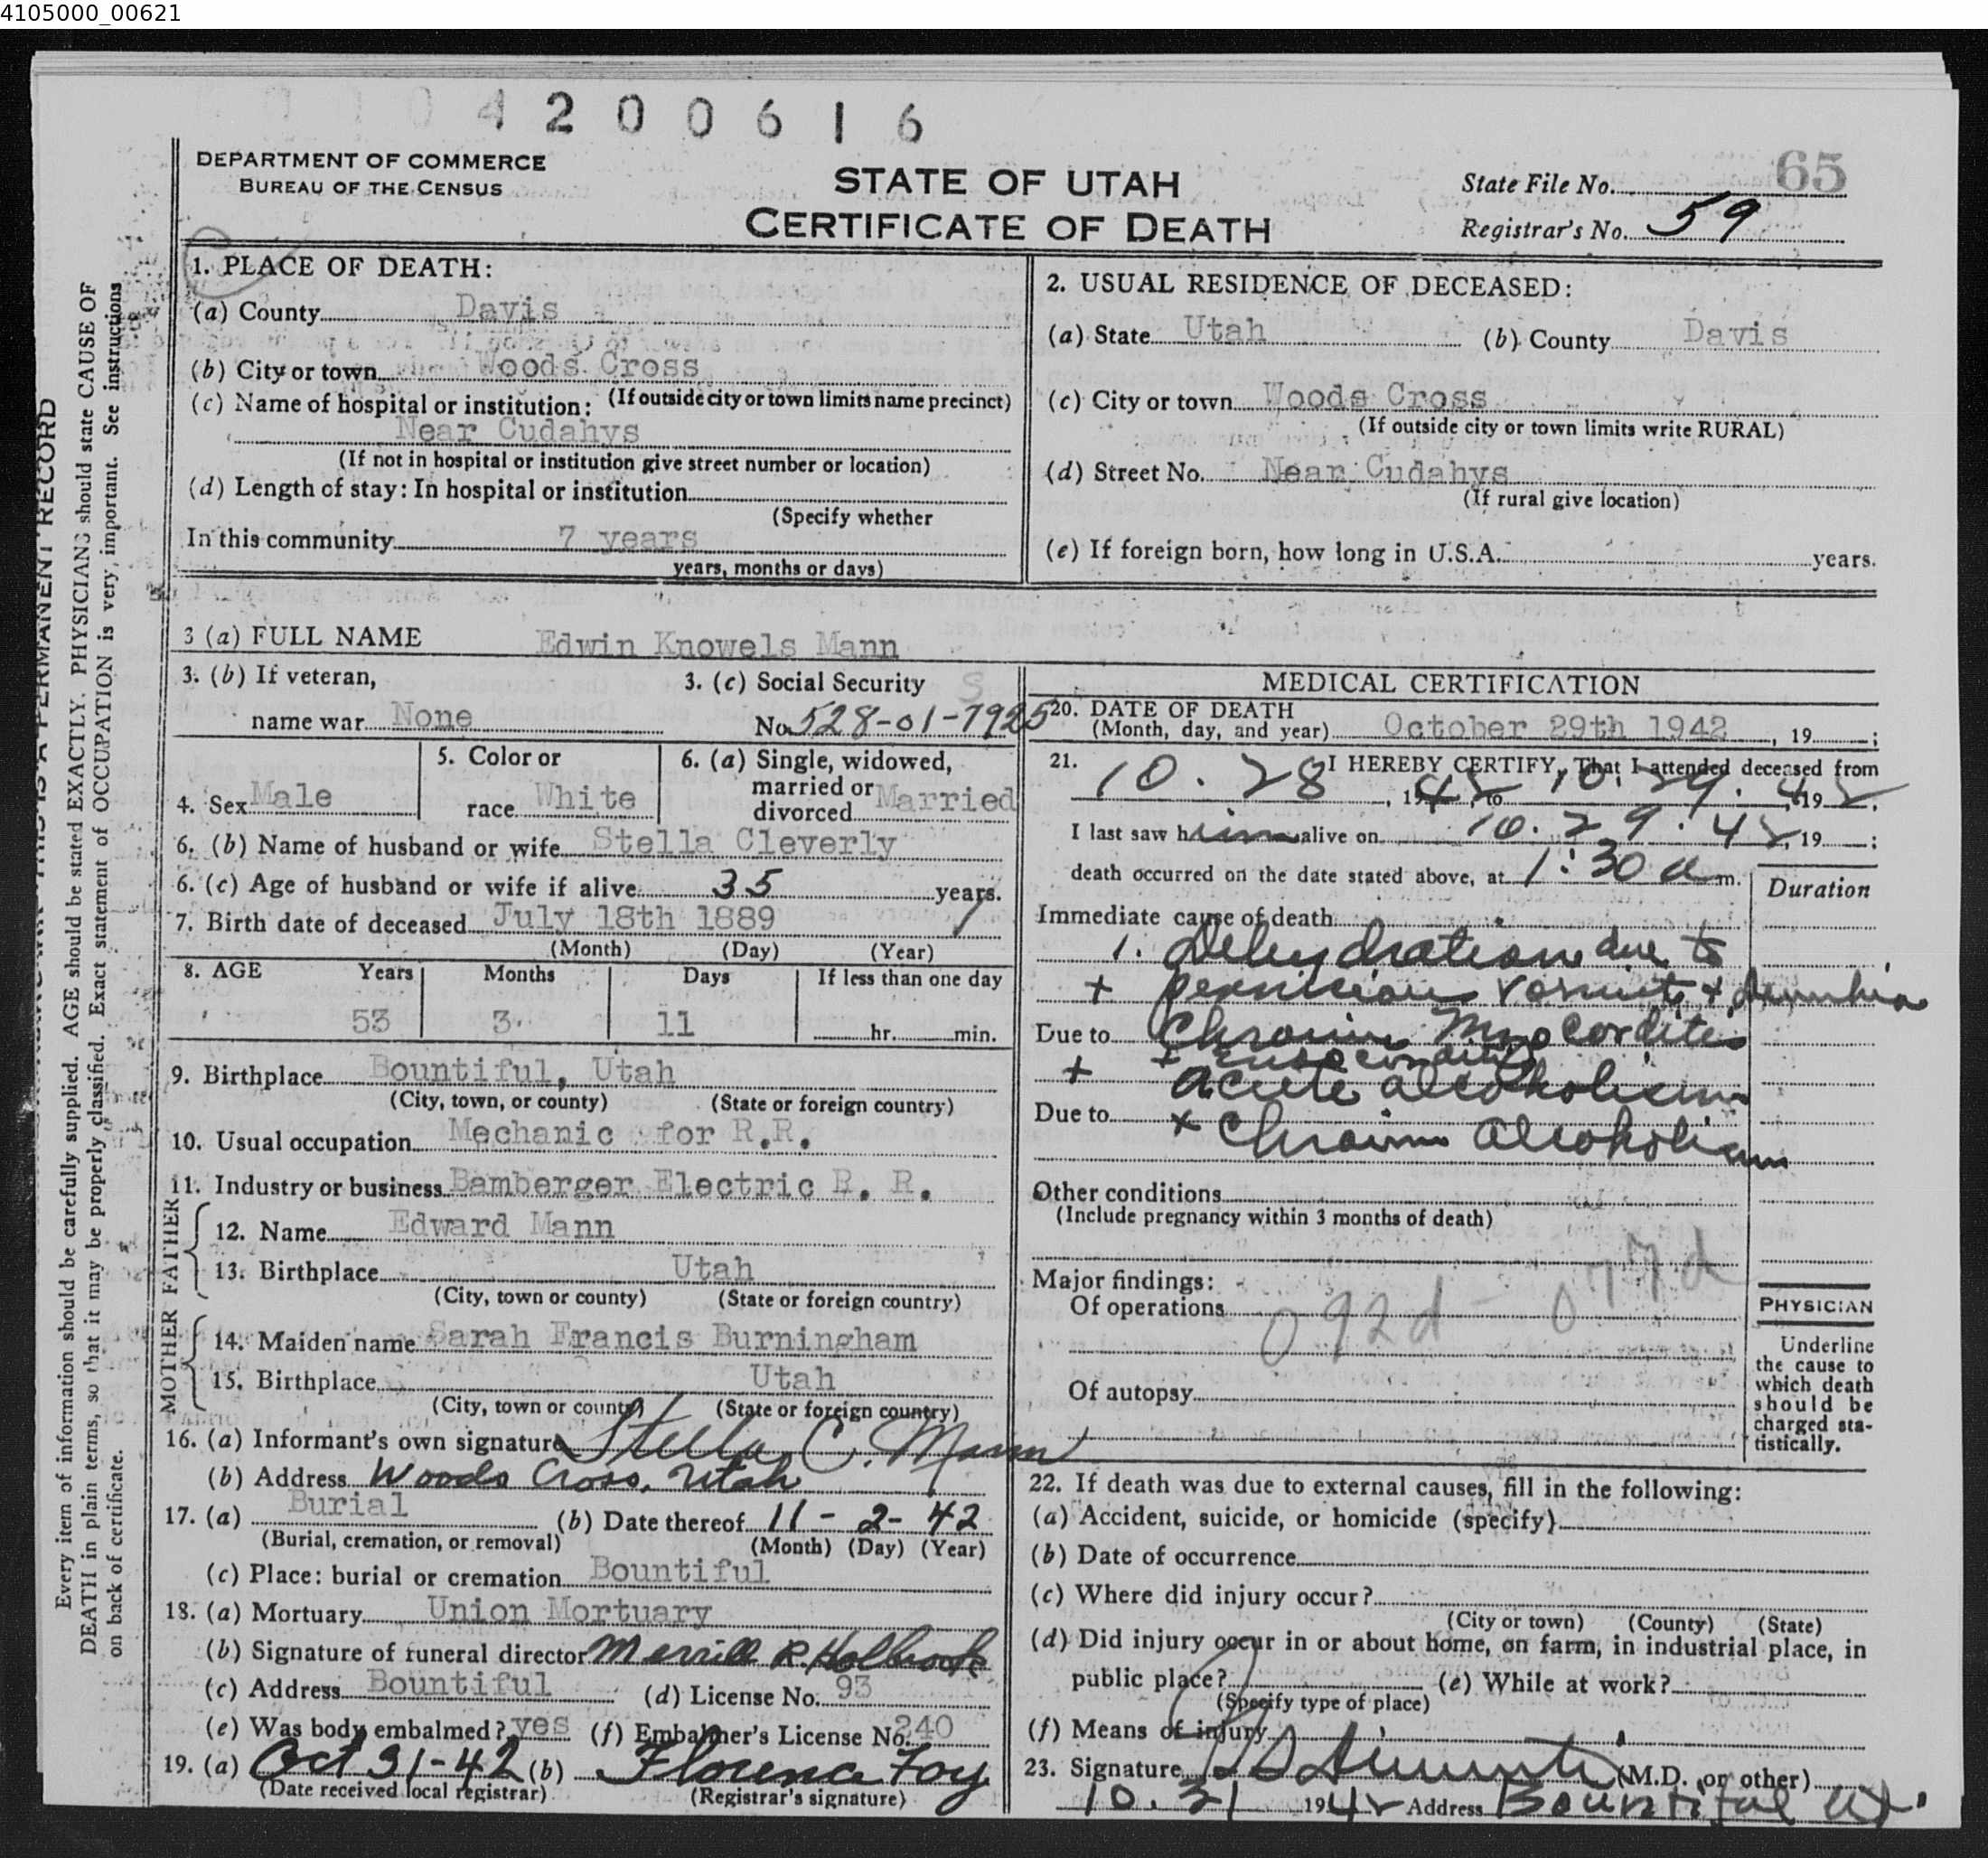 4105000_00621
0 1 0 4 2 0 0 6 1 6
DEPARTMENT OF COMMERCE
BUREAU OF THE CENSUS
STATE OF UTAH
CERTIFICATE OF DEATH
State File No. 65
Registrar's No. 59
Every item of information should be carefully supplied. AGE should be stated EXACTLY. PHYSICIANS should state CAUSE OF
DEATH in plain terms, so that it may be properly classified. Exact statement of OCCUPATION is very important. See instructions
on back of certificate.
THIS IS A PERMANENT RECORD
1. PLACE OF DEATH:
(a) County Davis
(b) City or town Woods Cross
(c) Name of hospital or institution: (If outside city or town limits name precinct)
Near Cudahys
(If not in hospital or institution give street number or location)
(d) Length of stay: In hospital or institution
(Specify whether
In this community 7 years
years, months or days)
2. USUAL RESIDENCE OF DECEASED:
(a) State Utah (b) County Davis
(c) City or town Woods Cross
(If outside city or town limits write RURAL)
(d) Street No. Near Cudahys
(If rural give location)
(e) If foreign born, how long in U.S.A. years.
3 (a) FULL NAME Edwin Knowels Mann
3. (b) If veteran,
name war None
3. (c) Social Security
No. 528-01-7925
4. Sex Male
5. Color or
race White
6. (a) Single, widowed,
married or
divorced Married
6. (b) Name of husband or wife Stella Cleverly
6. (c) Age of husband or wife if alive 35 years.
7. Birth date of deceased July 18th 1889
(Month) (Day) (Year)
8. AGE Years Months Days If less than one day
53 3 11 hr. min.
9. Birthplace Bountiful, Utah
(City, town, or county) (State or foreign country)
10. Usual occupation Mechanic for R.R.
11. Industry or business Bamberger Electric R. R.
FATHER
12. Name Edward Mann
13. Birthplace Utah
(City, town or county) (State or foreign country)
MOTHER
14. Maiden name Sarah Francis Burningham
15. Birthplace Utah
(City, town or county) (State or foreign country)
16. (a) Informant's own signature Stella C. Mann
(b) Address Woods Cross, Utah
17. (a) Burial (b) Date thereof 11 - 2 - 42
(Burial, cremation, or removal) (Month) (Day) (Year)
(c) Place: burial or cremation Bountiful
18. (a) Mortuary Union Mortuary
(b) Signature of funeral director Merrill R. Holbrook
(c) Address Bountiful (d) License No. 93
(e) Was body embalmed? yes (f) Embalmer's License No. 240
19. (a) Oct 31-42 (b) Florence Foy
(Date received local registrar) (Registrar's signature)
MEDICAL CERTIFICATION
20. DATE OF DEATH
(Month, day, and year) October 29th 1942, 19 ;
21. I HEREBY CERTIFY, That I attended deceased from
10. 28, 1942, to 10. 29. 4, 192.
I last saw him alive on 10. 29. 42, 19 ;
death occurred on the date stated above, at 1:30 a m.
Duration
Immediate cause of death
1. Dehydration due to
+ pernicious vomiting + diarrhia
Due to Chronic Myocarditis
+ + endocarditis
acute alcoholism
Due to + Chronic Alcoholism
Other conditions
(Include pregnancy within 3 months of death)
Major findings:
Of operations 092d - 077d
Of autopsy
PHYSICIAN
Underline
the cause to
which death
should be
charged sta-
tistically.
22. If death was due to external causes, fill in the following:
(a) Accident, suicide, or homicide (specify)
(b) Date of occurrence
(c) Where did injury occur?
(City or town) (County) (State)
(d) Did injury occur in or about home, on farm, in industrial place, in
public place? (e) While at work?
(Specify type of place)
(f) Means of injury
23. Signature (M.D. or other)
10. 31 1942 Address Bountiful Ut.